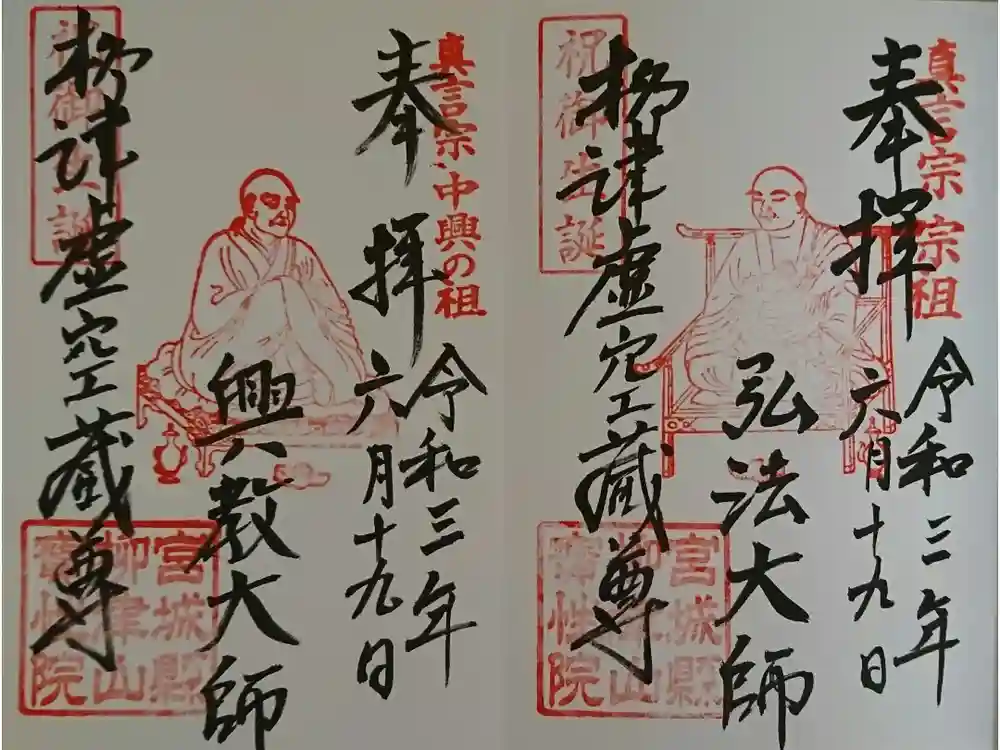 真言宗宗祖
奉拝
令和三年
六月十九日
弘法大師
祝御生誕
柳津虚空蔵尊
宮城縣
柳津山
寳性院
真言宗中興の祖
奉拝
令和三年
六月十九日
興教大師
祝御生誕
柳津虚空蔵尊
宮城縣
柳津山
寳性院